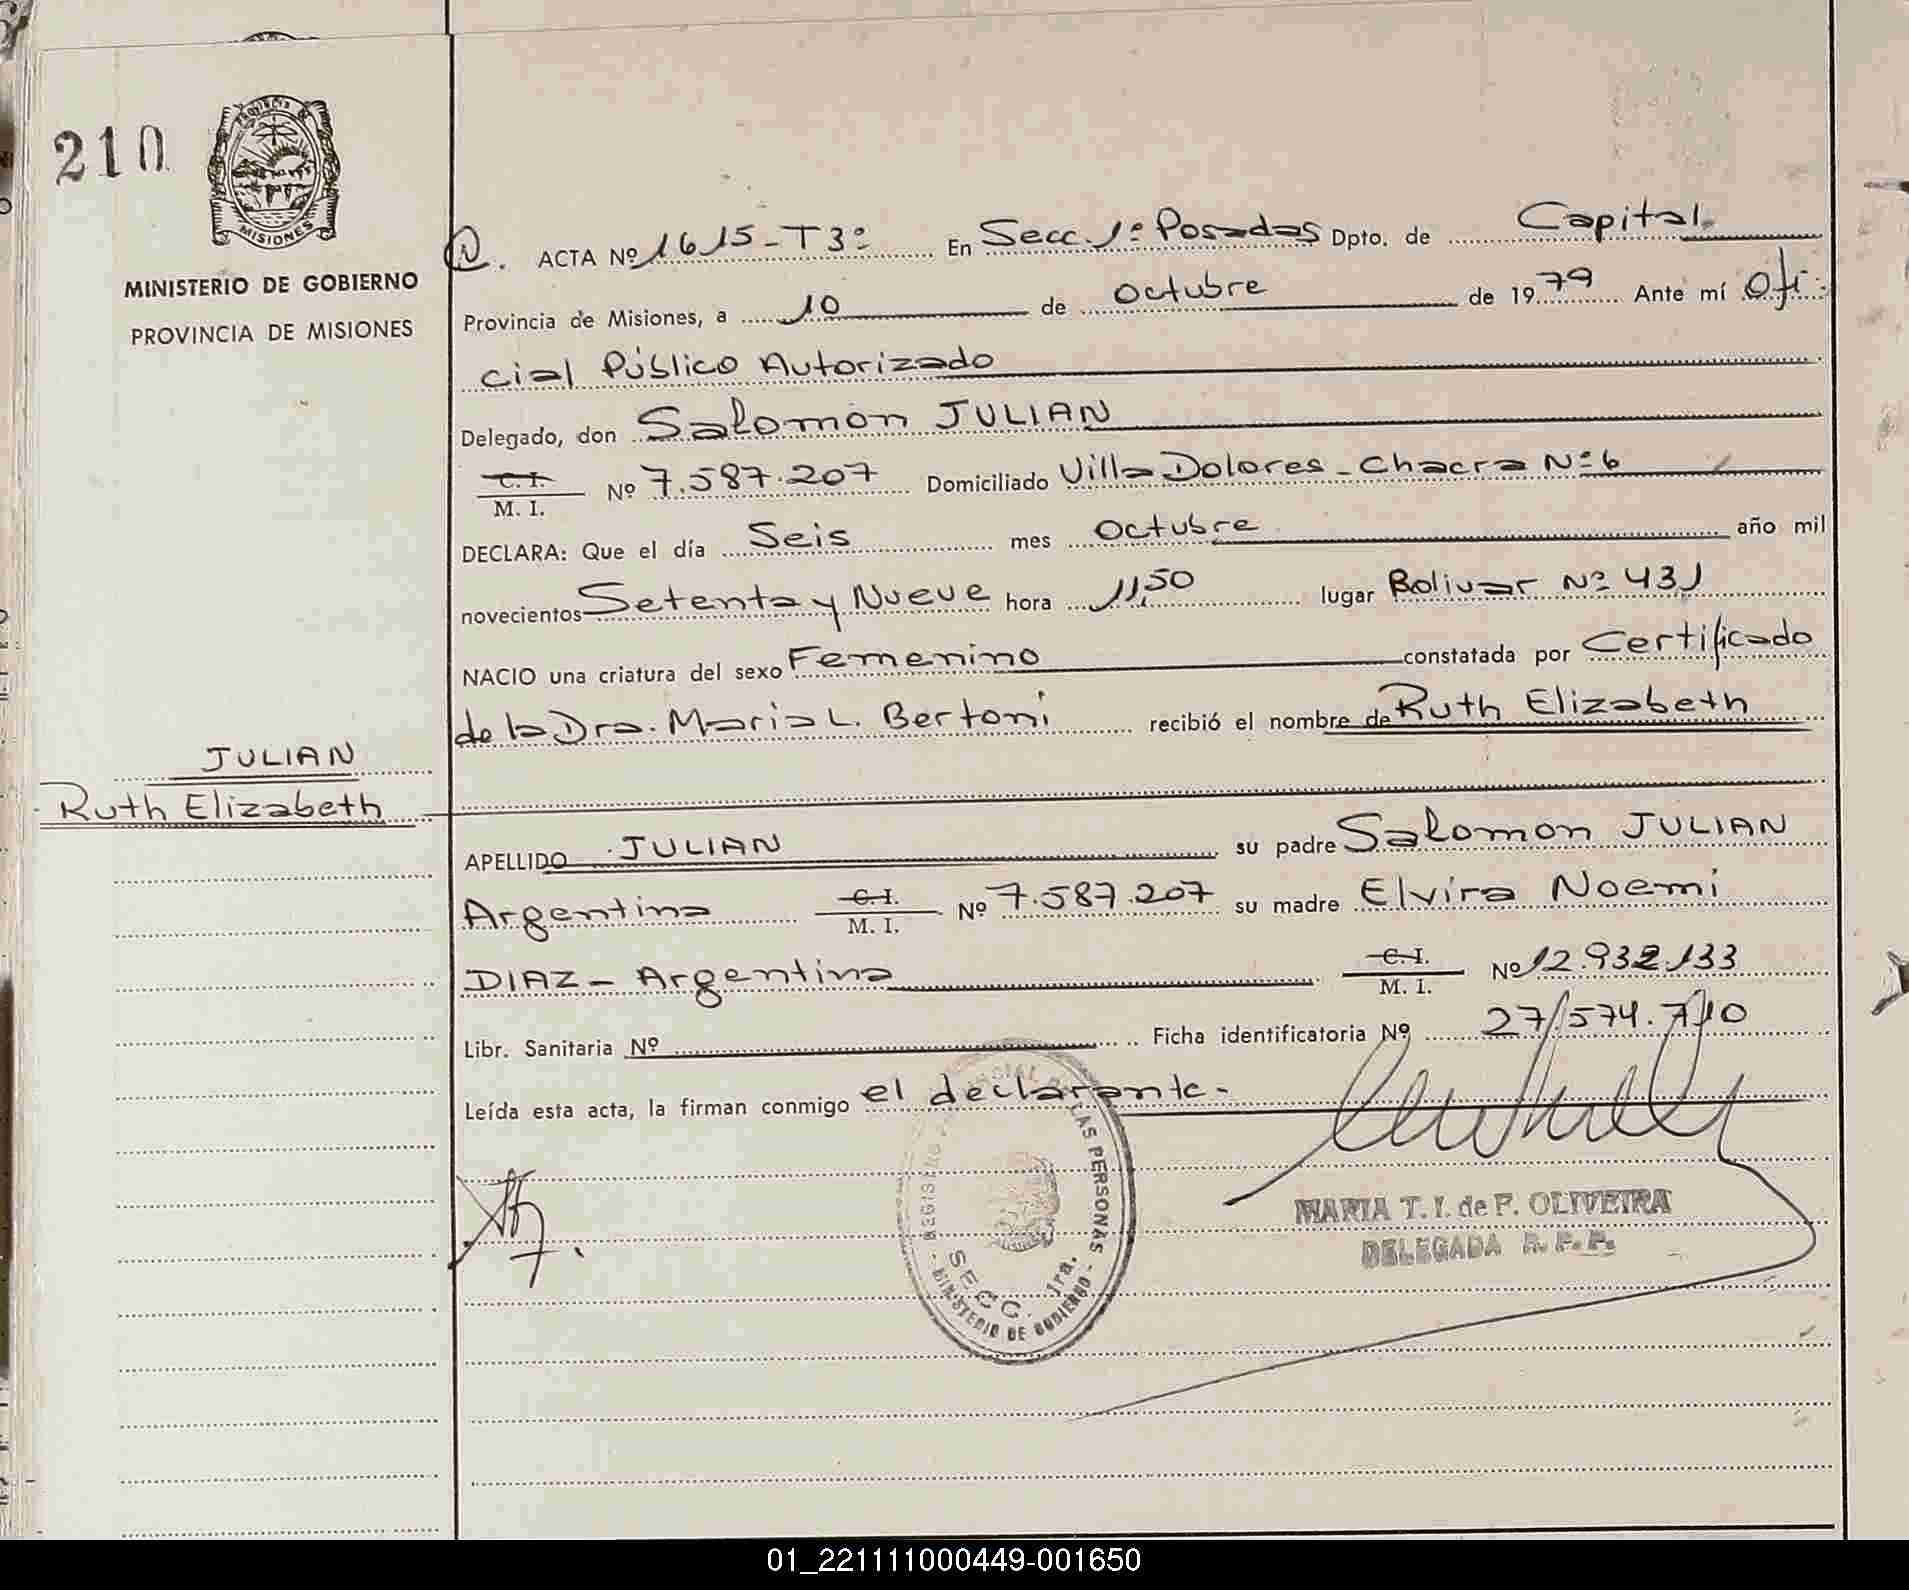 210
MISIONES
MINISTERIO DE GOBIERNO
PROVINCIA DE MISIONES
N. ACTA Nº 1615-T3º En Secc. 1º Posadas Dpto. de Capital
Provincia de Misiones, a 10 de octubre de 1979 Ante mí Ofi-
cial Público Autorizado
Delegado, don Salomón JULIAN
C. I.
M. I. Nº 7.587.207 Domiciliado Villa Dolores - Chacra Nº 6
DECLARA: Que el día Seis mes octubre año mil
novecientos Setenta y Nueve hora 11,50 lugar Bolivar Nº 431
NACIO una criatura del sexo Femenino constatada por Certificado
de la Dra. Maria L. Bertoni recibió el nombre de Ruth Elizabeth
JULIAN
Ruth Elizabeth
APELLIDO JULIAN su padre Salomon JULIAN
Argentina C. I.
M. I. Nº 7.587.207 su madre Elvira Noemi
DIAZ - Argentina C. I.
M. I. Nº 12.932.133
Libr. Sanitaria Nº Ficha identificatoria Nº 27/574.710
Leída esta acta, la firman conmigo el declarante-
LAS PERSONAS
SECC. 1ra.
MINISTERIO DE GOBIERNO
MARIA T. I. de F. OLIVEIRA
DELEGADA R. P. P.
01_221111000449-001650